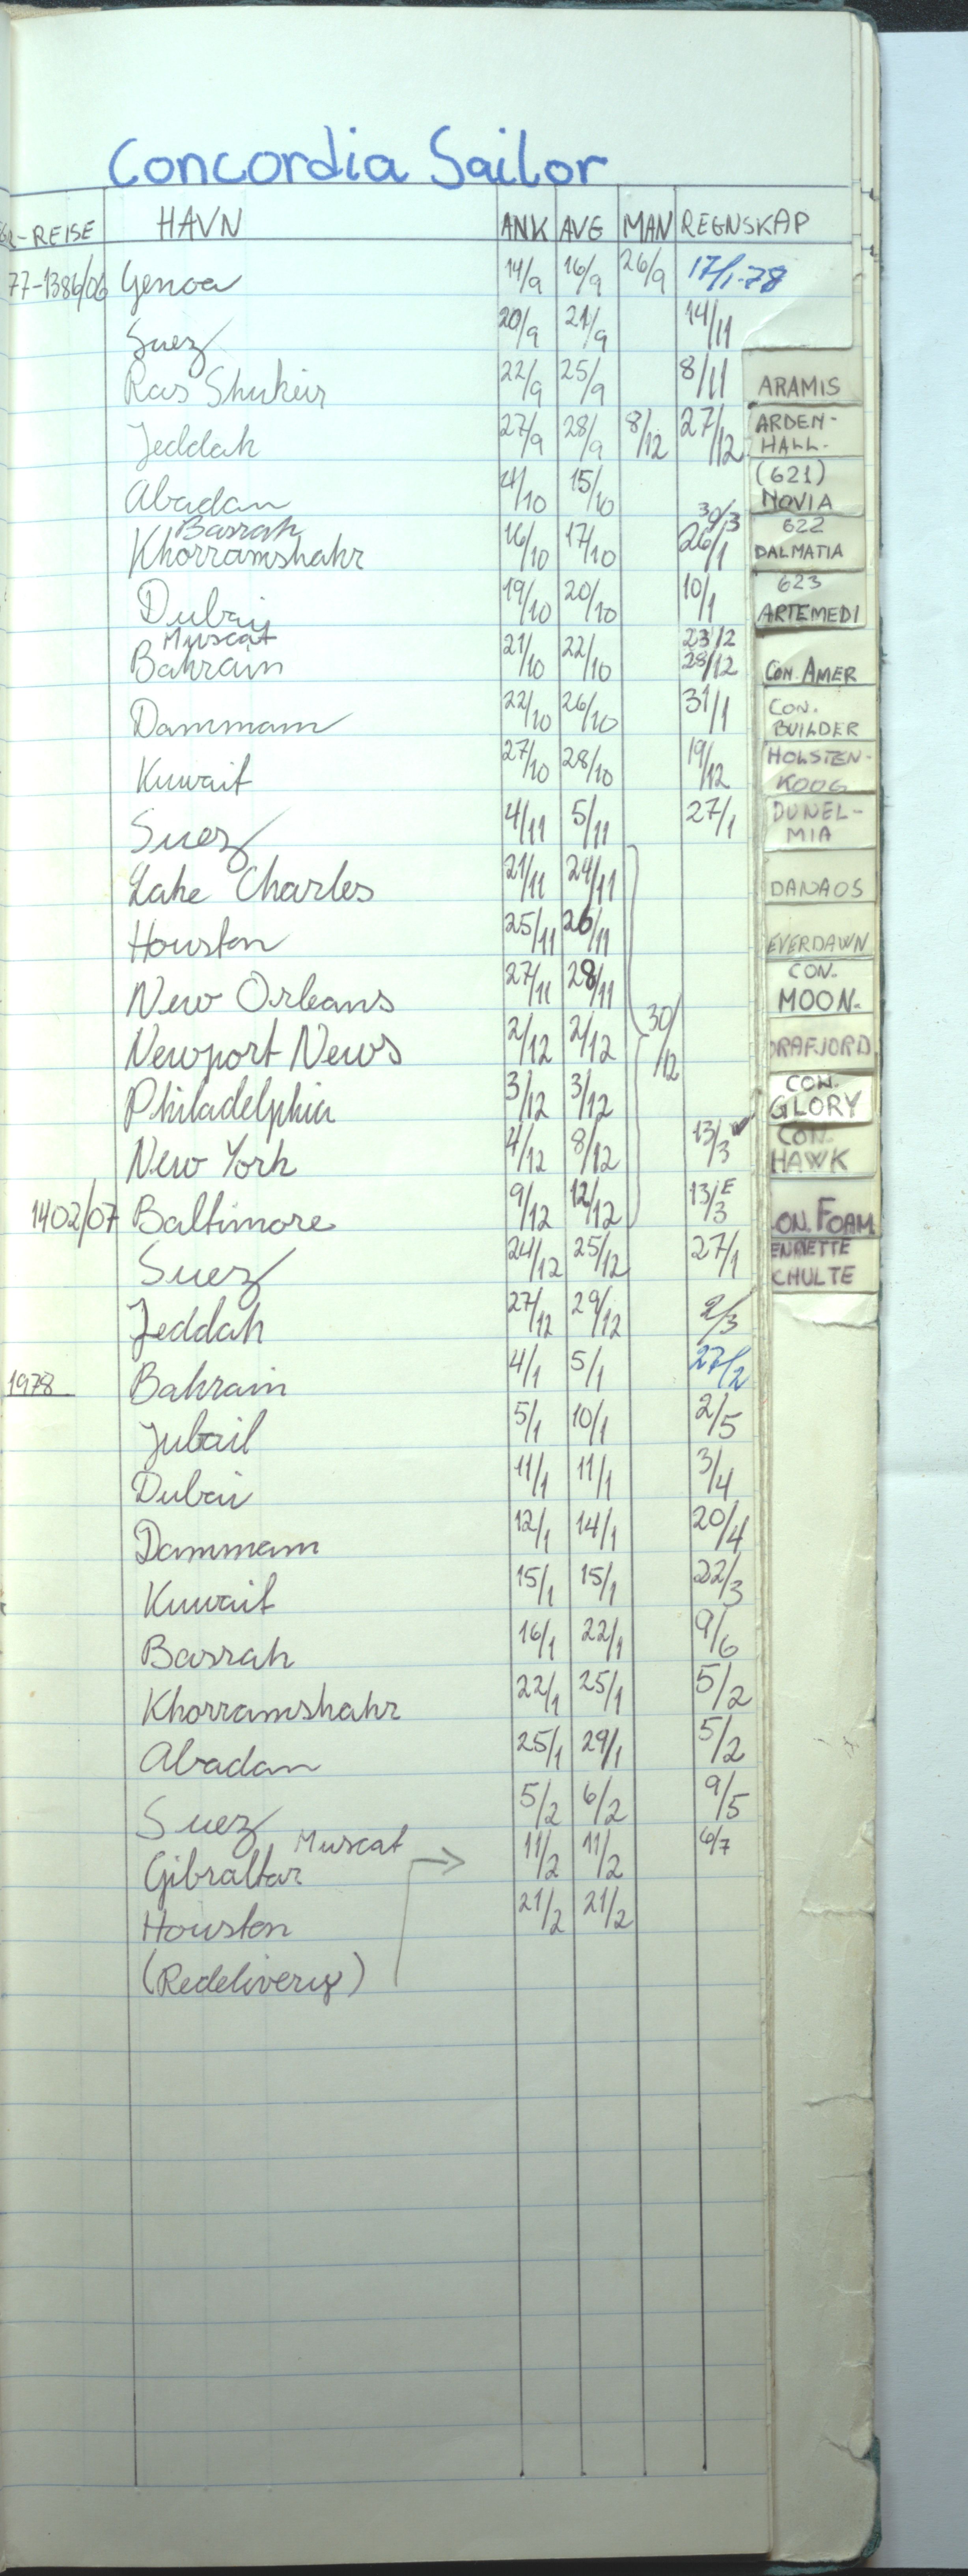 Concordia Sailor
R-REISE HAVN ANK AVG MAN REGNSKAP
77-1386/06 Genoa 14/9 16/9 26/9 17/1-78
Suez 20/9 21/9 14/11
Ras Shukeir 22/9 25/9 8/11
Jeddah 27/9 28/9 8/12 27/12
Abadan 4/10 15/10
Basrah 30/3
Khorramshahr 16/10 17/10 26/1
Dubai 19/10 20/10 10/1
Muscat 23/12
Bahrain 21/10 22/10 28/12
Dammam 22/10 26/10 31/1
Kuwait 27/10 28/10 19/12
Suez 4/11 5/11 27/1
Lake Charles 21/11 24/11
Houston 25/11 26/11
New Orleans 27/11 28/11
Newport News 2/12 2/12 30/12
Philadelphia 3/12 3/12
New York 4/12 8/12 13/3
1402/07 Baltimore 9/12 12/12 13/3 E
Suez 24/12 25/12 27/1
Jeddah 27/12 29/12 2/3
1978 Bahrain 4/1 5/1 27/2
Jubail 5/1 10/1 2/5
Dubai 11/1 11/1 3/4
Dammam 12/1 14/1 20/4
Kuwait 15/1 15/1 22/3
Basrah 16/1 22/1 9/6
Khorramshahr 22/1 25/1 5/2
Abadan 25/1 29/1 5/2
Suez 5/2 6/2 9/5
Muscat 6/7
Gibraltar 11/2 11/2
Houston 21/2 21/2
(Redelivery)
ARAMIS
ARDEN-
HALL-
(621)
NOVIA
622
DALMATIA
623
ARTEMEDI
CON. AMER
CON.
BUILDER
HOLSTEN-
KOOG
DUNEL-
MIA
DANAOS
EVERDAWN
CON.
MOON-
DRAFJORD
CON.
GLORY
CON.
HAWK
ON. FOAM
ENRIETTE
CHULTE